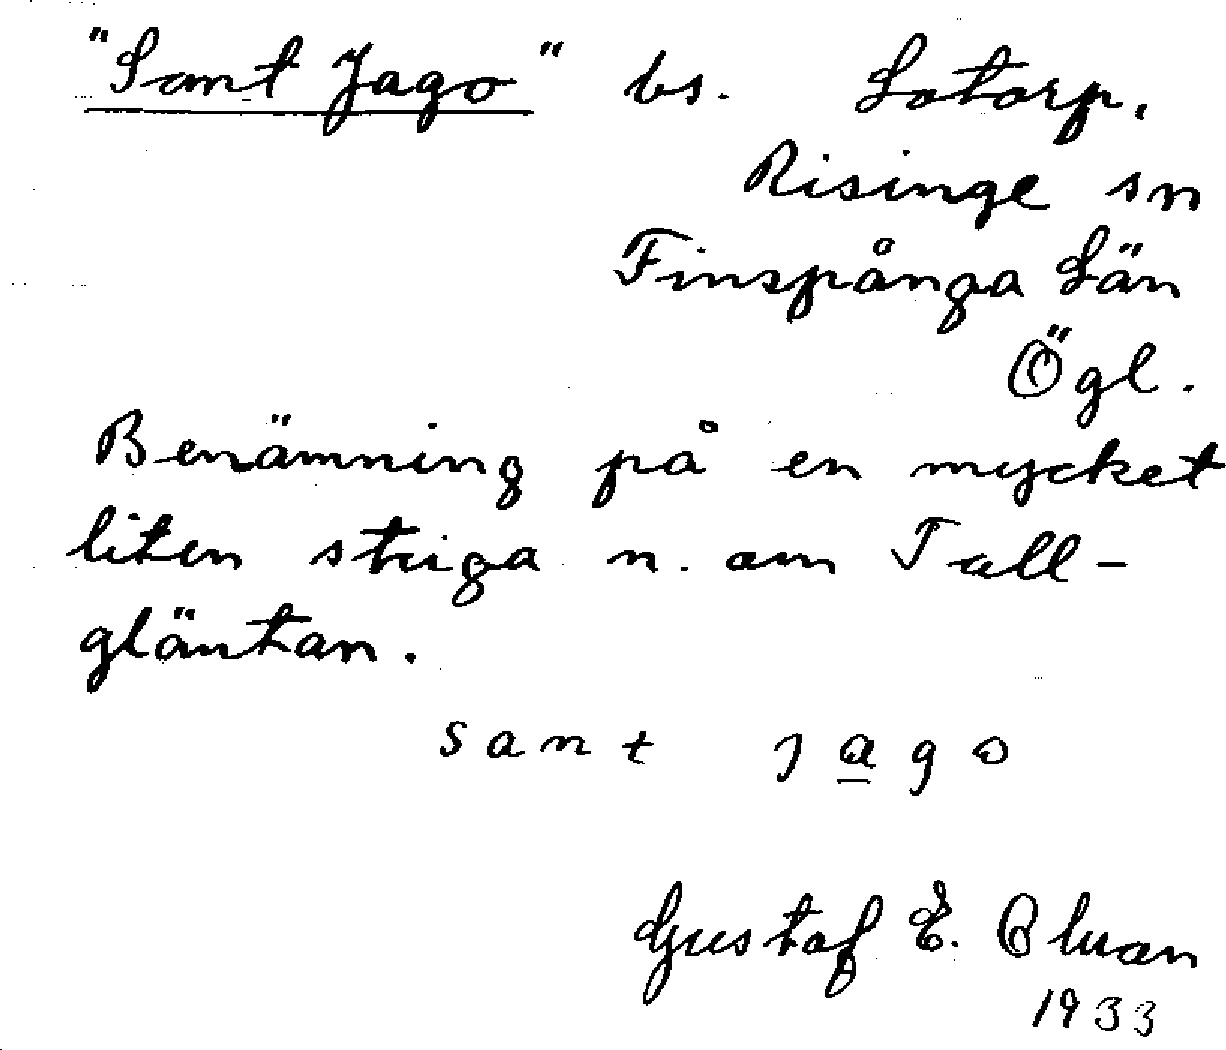 "Sant Jago" bs. Lotorp,
Risinge sn
Finspånga Län
Ögl.
Benämning på en mycket
liten stuga n. om Tall-
gläntan.
sant jago
Gustaf E.
1933